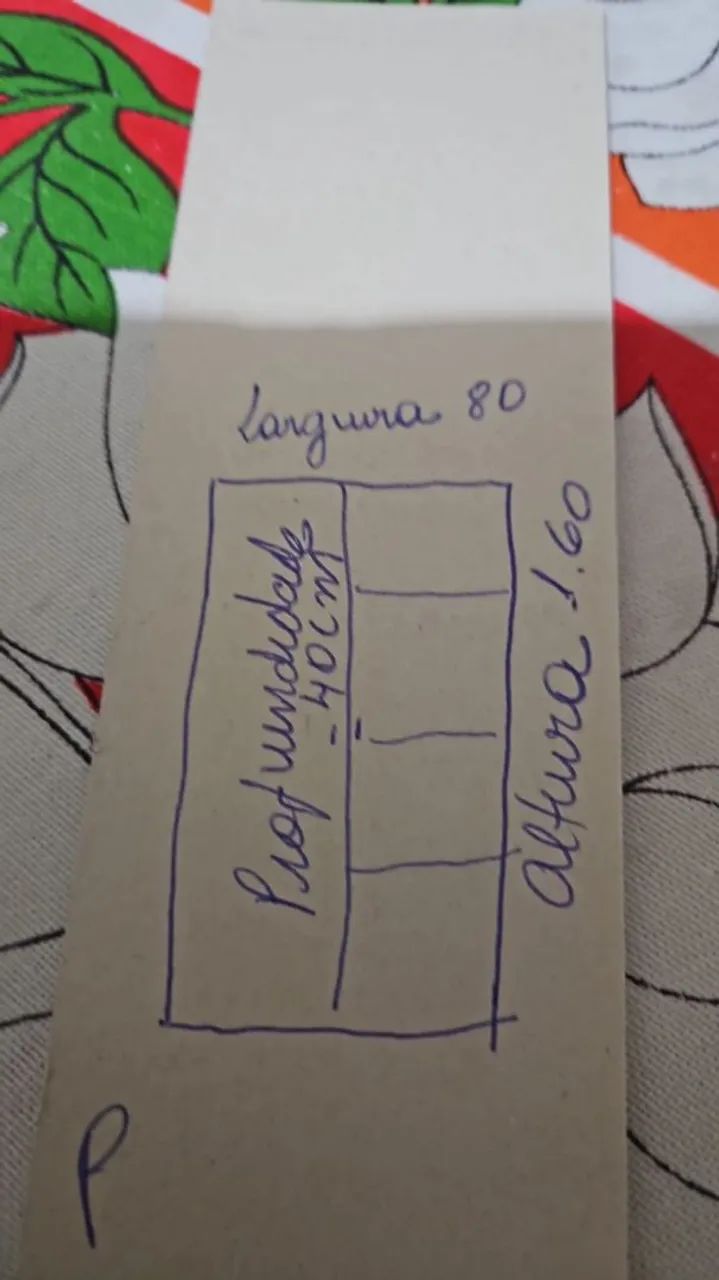 Largura 80
Profundidade
40cm
Altura 1.60
P